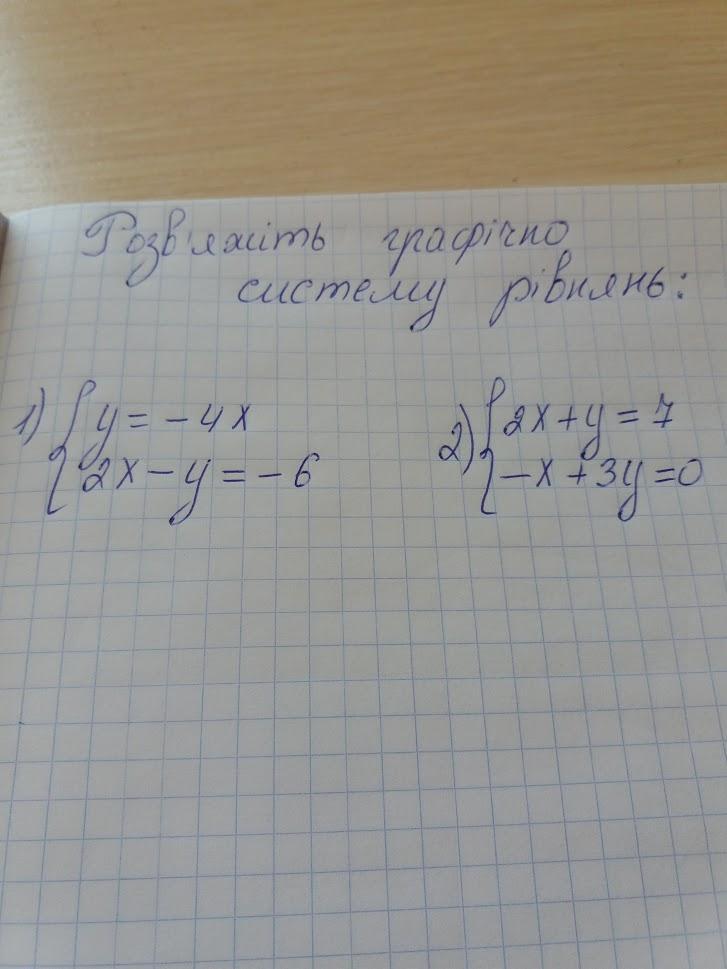 Розв'яжіть графічно
систему рівнянь:
1) { y = -4x
2x - y = -6
2) { 2x + y = 7
-x + 3y = 0